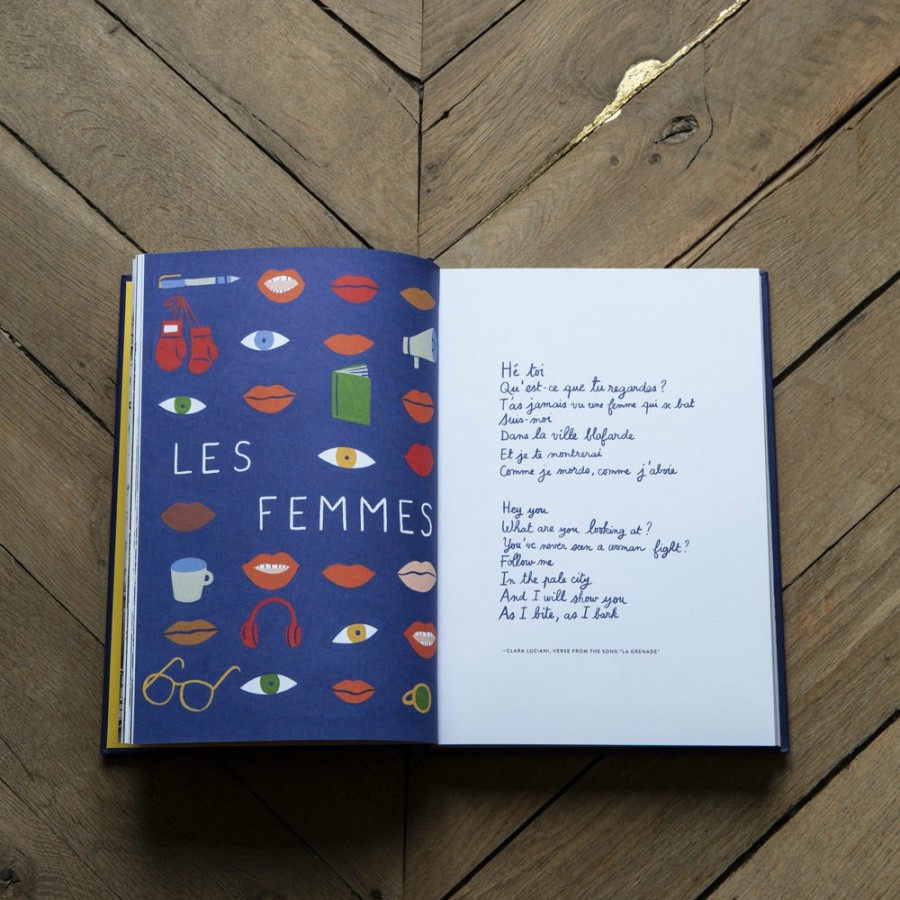 LES
FEMMES
Hé toi
Qu'est-ce que tu regardes ?
T'as jamais vu une femme qui se bat
Suis-moi
Dans la ville blafarde
Et je te montrerai
Comme je mords, comme j'aboie
Hey you
What are you looking at ?
You've never seen a woman fight ?
Follow me
In the pale city
And I will show you
As I bite, as I bark
–CLARA LUCIANI, VERSE FROM THE SONG "LA GRENADE"